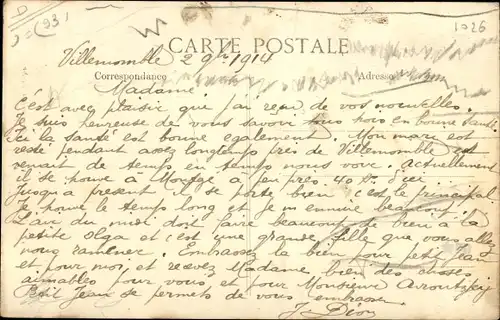 D (93)
1026
CARTE POSTALE
Villemomble 2 9bre 1914
Correspondance
Adresse
Madame.
C'est avec plaisir que j'ai reçu de vos nouvelles.
Je suis heureuse de vous savoir tous trois en bonne santé
Ici la santé est bonne également Mon mari est
resté pendant assez longtemps près de Villemomble et
venait de temps en temps nous voir. Actuellement
il se trouve à à peu près 40 K. d'ici
Jusqu'a présent il se porte bien c'est le principal.
Je trouve le temps long et je m'ennuie beaucoup.
L'air du midi doit faire beaucoup de bien à la
petite Olga et c'est une grande fille que vous allez
nous ramener. Embrassez la bien pour petit Jean
et pour moi, et recevez Madame bien des choses
aimables pour vous et pour Monsieur
Petit Jean se permets de vous embrasser.
J. Dion